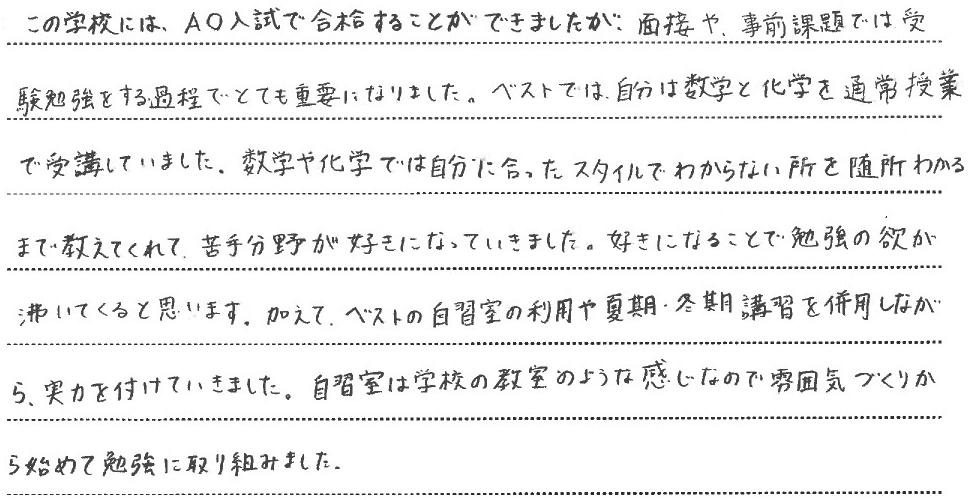 この学校には、AO入試で合格することができましたが、面接や、事前課題では受
験勉強をする過程でとても重要になりました。ベストでは、自分は数学と化学を通常授業
で受講していました。数学や化学では自分に合ったスタイルでわからない所を随所わかる
まで教えてくれて、苦手分野が好きになっていきました。好きになることで勉強の欲が
沸いてくると思います。加えて、ベストの自習室の利用や夏期・冬期講習を併用しなが
ら、実力を付けていきました。自習室は学校の教室のような感じなので雰囲気づくりか
ら始めて勉強に取り組みました。